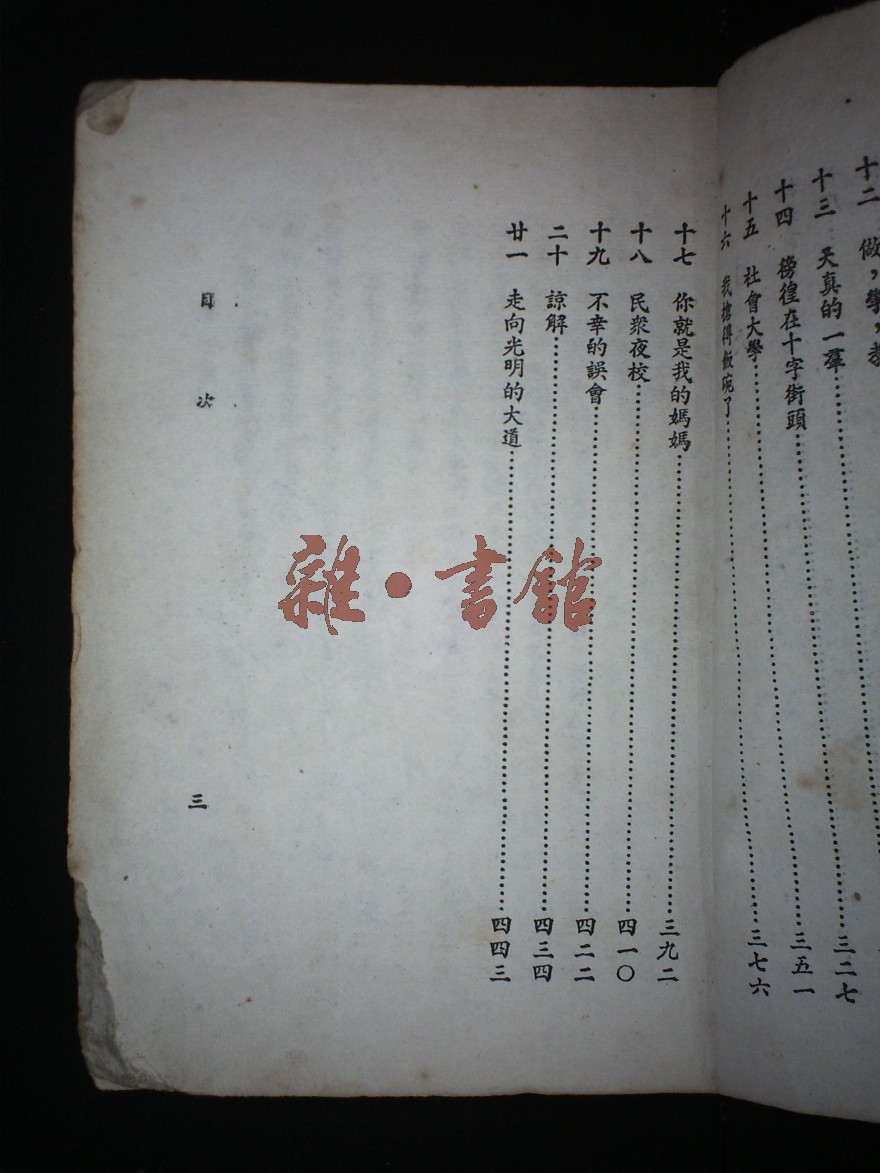 十二 做，學，教
十三 天真的一羣
十四 徬徨在十字街頭……三二七
十五 社會大學……三五一
十六 我搶得飯碗了……三七六
十七 你就是我的媽媽……三九二
十八 民衆夜校……四一〇
十九 不幸的誤會……四二二
二十 諒解……四三四
廿一 走向光明的大道……四四三
目次
三
雜·書館